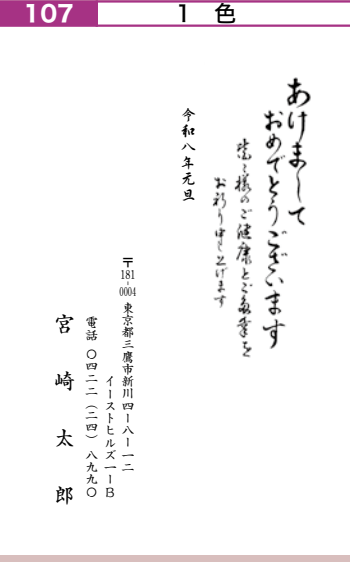 107
1 色
あけまして
おめでとうございます
皆々様のご健康とご多幸を
お祈り申し上げます
令和八年元旦
〒181-0004 東京都三鷹市新川四ー八ー一二
イーストヒルズ一ーB
電話 〇四二二（二四）八九九〇
宮崎太郎